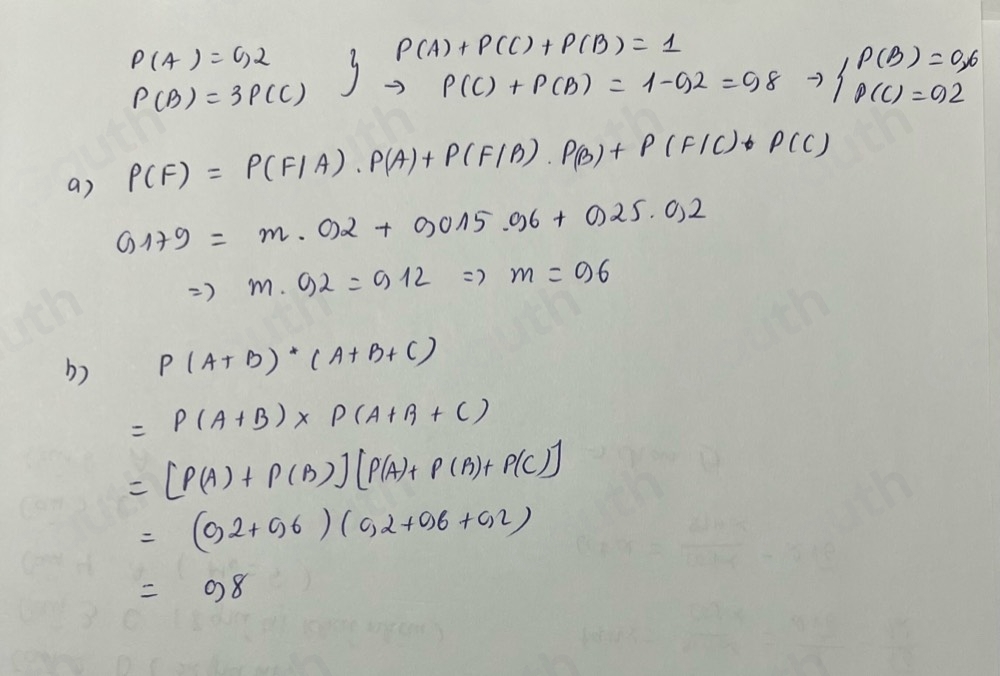 P(A) = 0,2 } P(A) + P(C) + P(B) = 1
P(B) = 3P(C) → P(C) + P(B) = 1-0,2 = 0,8 → { P(B) = 0,6
P(C) = 0,2
a) P(F) = P(F/A) . P(A) + P(F/B) . P(B) + P(F/C) • P(C)
0,179 = m . 0,2 + 0,015 . 0,6 + 0,25 . 0,2
=> m . 0,2 = 0,12 => m = 0,6
b) P(A+B) * (A+B+C)
= P(A+B) x P(A+B+C)
= [P(A) + P(B)][P(A) + P(B) + P(C)]
= (0,2+0,6)(0,2+0,6+0,2)
= 0,8